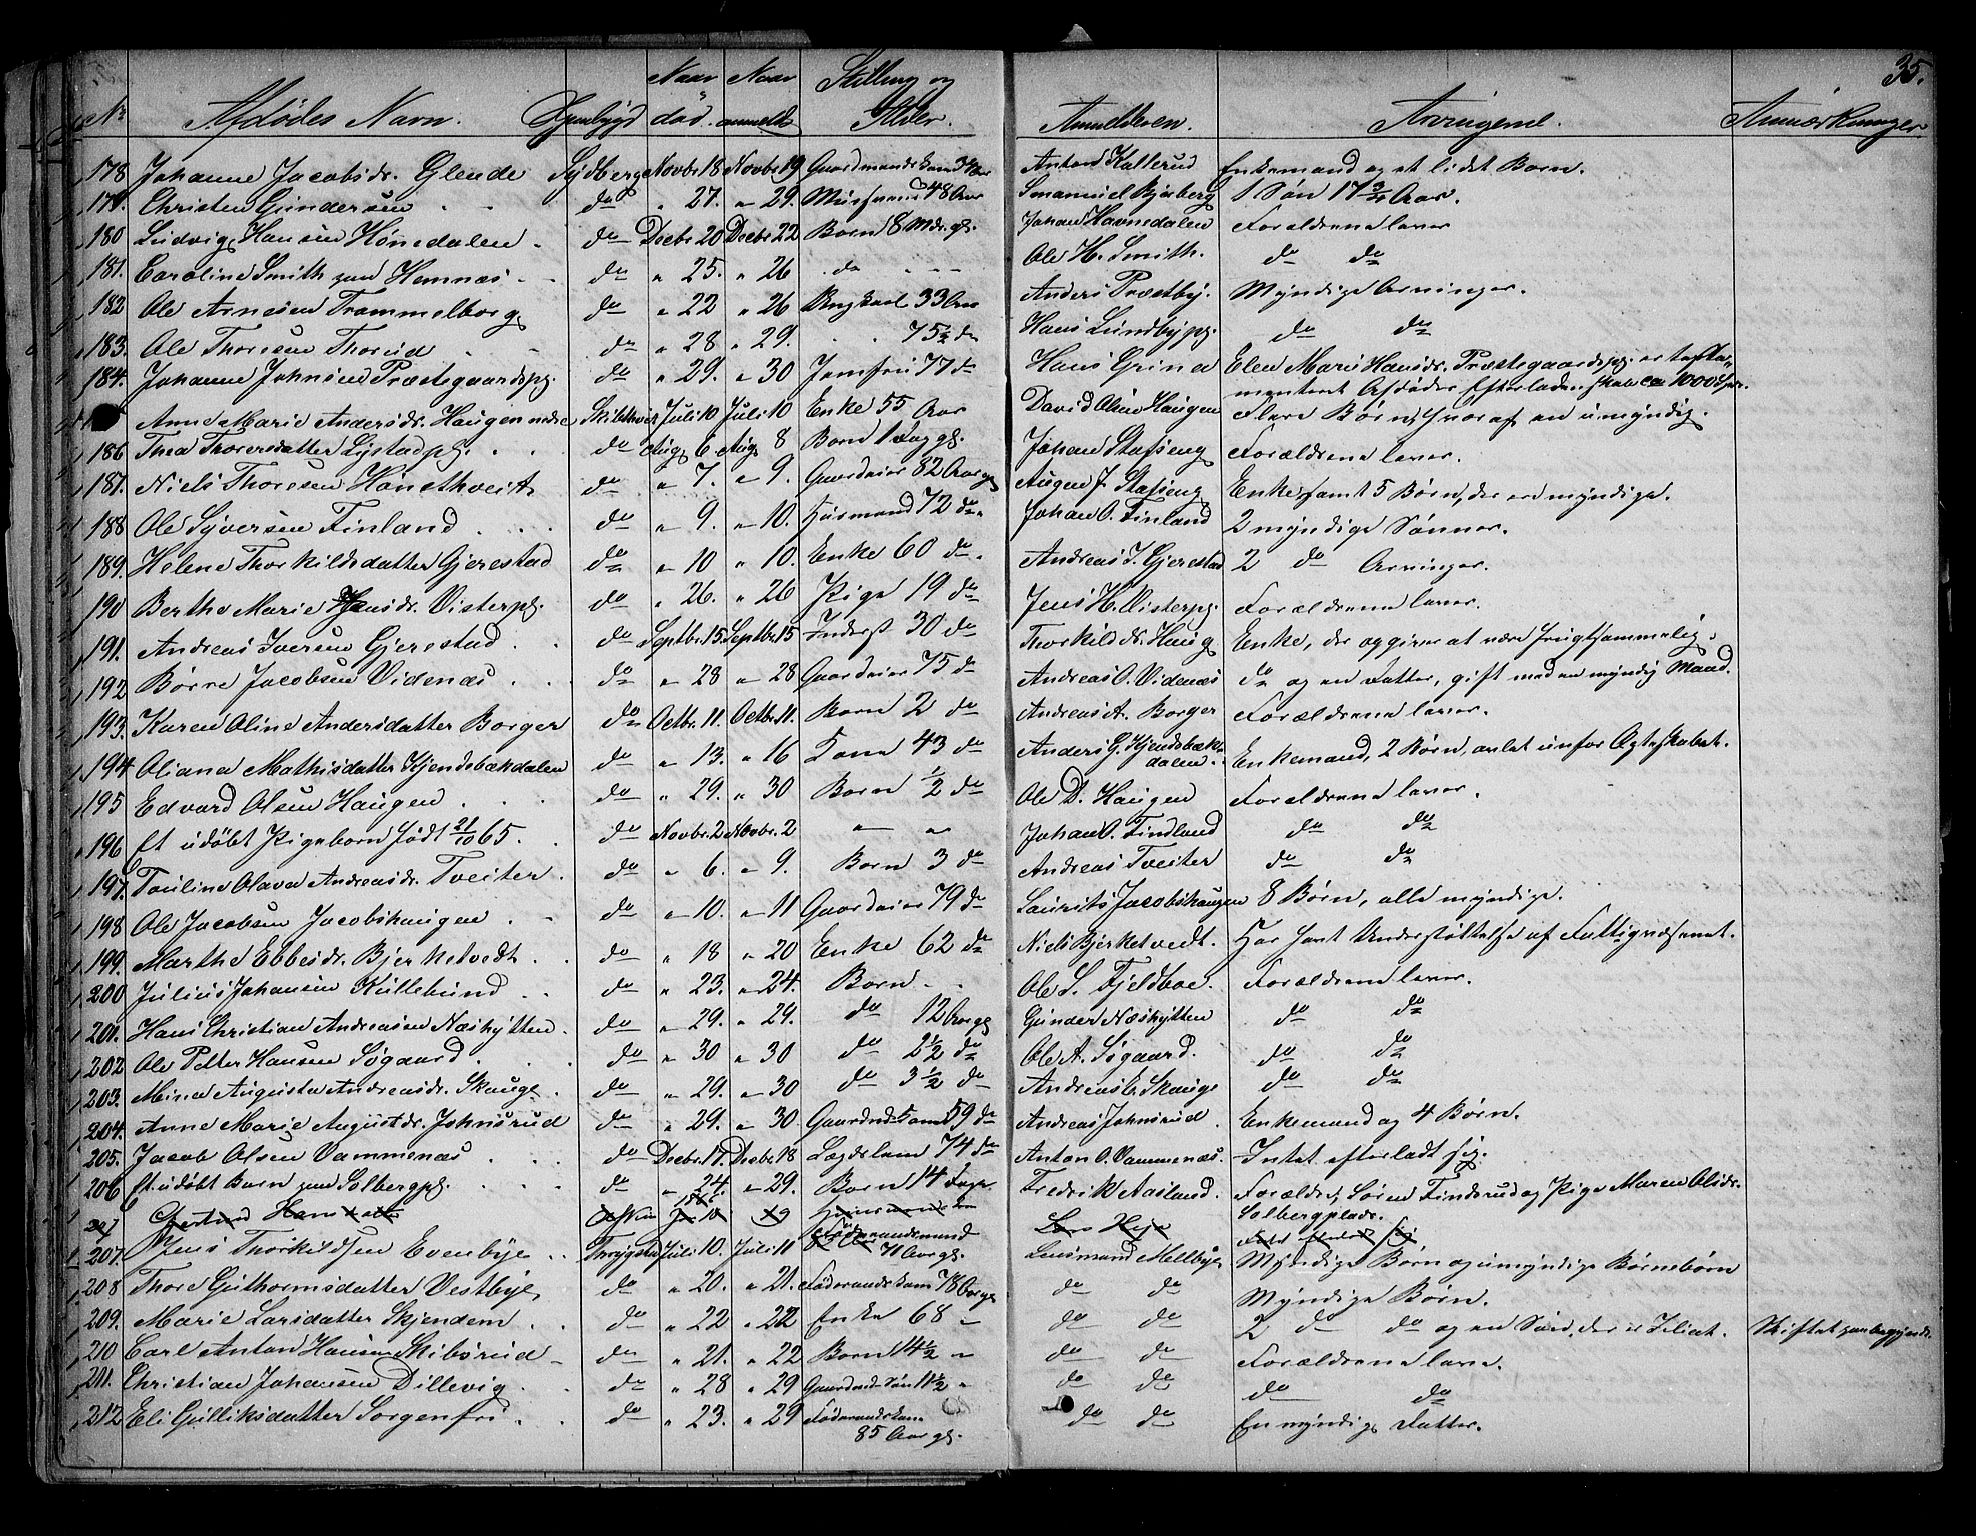 35.
No Afdødes Navn. Hjembygd Naar død. Naar anmeldt Stilling og Alder. Anmelderen. Arvingerne. Anmærkninger
178 Johanne Jacobsdr. Glende Novbr. 18 Novbr. 19 Anton Kallerud Enkemand og et lidet Barn.
179. Christen Gundersen do " 27. " 29. 48 Aar Emanuel Bjerberg 1 Søn 17 3/4 Aar.
180 Ludvig Hansen Hønedalen do Decbr. 20 Decbr. 22 Barn 8 Mdr. gl. Johan Havnedalen Forældrene lever
181. Caroline Smith paa Hemnæs do " 25. " 26 do Ole H. Smith. do do
182 Ole Arnesen Trammelborg do " 22 " 26 33 Aar Anders Præstby. Myndige Arvinger.
183. Ole Thoresen Thorud do " 28 " 29. 75 1/2 do Hans Lundbypl. do do
184. Johanne Johnsen Præstegaardspl. do " 29. " 30 Jomfru 77 do Hans Grina Elen Marie Hansdr. Præstegaardspl. er testa-
menteret Afdødes Efterladenskab ca 1000 Spd.
Anne Marie Andersdr. Haugen nedre Juli 10 Juli 10 Enke 55 Aar David Olsen Haugen Flere Børn, hvoraf en umyndig.
186 Thea Thorersdatter Lystadpl. do Aug. 6. Aug. 8 Barn 1 Dag gl. Johan Stafseng Forældrene lever.
187. Niels Thoresen Hønsthveit do " 7. " 9. Gaardeier 82 Aar gl. Augen J. Stafseng Enke samt 5 Børn, der ere myndige.
188 Ole Syversen Finland do " 9. " 10. Husmand 72 do Johan O. Finland 2 myndige Sønner.
189. Helene Thorkildsdatter Gjerestad do " 10 " 10. Enke 60 do Andreas I. Gjerestad 2 do Arvinger.
190 Berthe Marie Hansdr. Visterpl. do " 26. " 26 Pige 19 do Jens H. Visterpl. Forældrene lever.
191. Andreas Iversen Gjerestad do Septbr. 15 Septbr. 15 Inderst 30 do Thorkild Haug Enke, der opgiver at være frugtsommelig.
192 Børre Jacobsen Videnæs do " 28 " 28 Gaardeier 75 do Andreas O. Videnæs do og en Datter, gift med en myndig Mand.
193. Karen Oline Andersdatter Borger do Octbr. 11. Octbr. 11. Barn 2 do Andreas A. Borger Forældrene lever.
194 Oliana Mathisdatter Kjendsbækdalen do " 13. " 16 Kone 43 do Anders G. Kjendsbæk-
dalen Enkemand, 2 Børn, avlet unfor Ægteskabet.
195 Edvard Olsen Haugen do " 29. " 30 Barn 1/2 do Ole D. Haugen Forældrene lever.
196 Et udøbt Pigebarn født 21/10 65. do Novbr. 2 Novbr. 2 " " Johan O. Findland do do
197. Pauline Olava Andreasdr. Tveiter do " 6. " 9. Barn 3 do Andreas Tveiter do do
198 Ole Jacobsen Jacobshaugen do " 10. " 11 Gaardeier 79 do Laurits Jacobshaugen 8 Børn, alle myndige.
199. Marthe Ebbesdr. Bjerketvedt do " 18 " 20 Enke 62 do Niels Bjerketvedt. Har havt Understøttelse af Fattigvæsenet.
200 Julius Johansen Kullebund do " 23. " 24. Barn Ole S. Fjeldboe. Forældrene lever.
201. Hans Christian Andreasen Næshytten do " 29. " 29. do 12 Aar gl. Gunder Næshytten do do
202 Ole Petter Hansen Søgaard do " 30 " 30 do 2 1/2 do Ole A. Søgaard. do do
203. Mina Augusta Andreasdr. Skauge do " 29. " 30 do 3 1/2 do Andreas E. Skauge do do
204. Anne Marie Augustdr. Johnsrud do " 29. " 30 59 do Andreas Johnsrud Enkemand og 4 Børn.
205. Jacob Olsen Vammenæs do Decbr. 17. Decbr. 18 Lægdslem 74 do Anton O. Vammenæs. Intet efterladt sig.
206 Et udøbt Barn paa Solbergpl. do " 24. " 29. Barn 14 Dage Fredrik Aasland. Forældre, Søren Findsrud og Pige Maren Olsdr.
Solbergplads.
207. Jens Thorkildsen Evenbye Juli 10. Juli 11 Føderaadsmand
71 Aar gl. Lensmand Mellbye Myndige Børn og umyndige Børnebørn
208 Thore Guthormsdatter Vestbye do " 20. " 21. Føderaadskone 78 Aar gl. do do Myndige Børn.
209. Marie Larsdatter Skjendem do " 22 " 22 Enke 68 " do do 2 do do og en Søn, der er Idiot. Skiftet paabegyndt.
210 Carl Anton Hansen Skibsrud do " 21. " 22 Barn 14 1/2 " do do Forældrene lever.
211. Christian Johansen Dillevig do " 28 " 29 Gaardmd. Søn 11 1/2 " do do do do
212 Eli Gulliksdatter Sorgenfri do " 23. " 29 Føderaadskone
85 Aar gl. do do En myndig Datter.